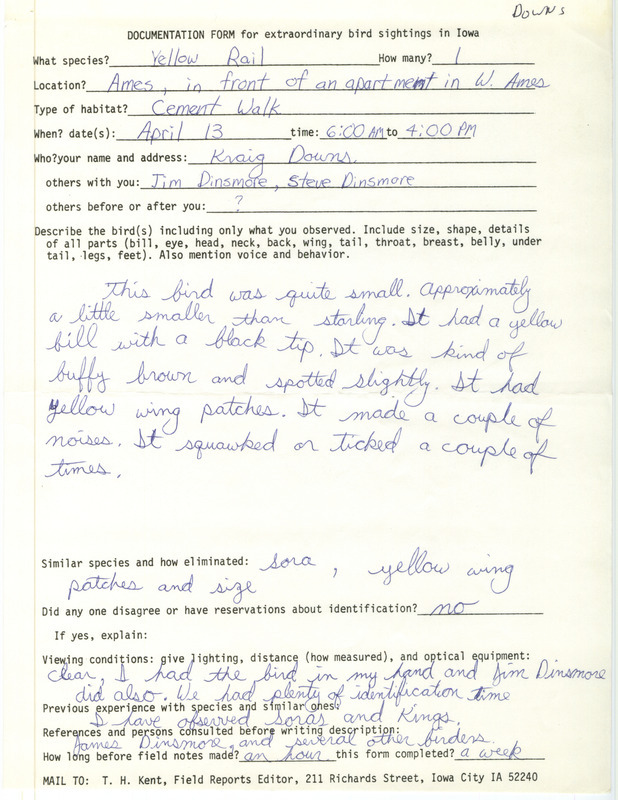 Downs
DOCUMENTATION FORM for extraordinary bird sightings in Iowa
What species? Yellow Rail How many? 1
Location? Ames, in front of an apartment in W. Ames
Type of habitat? Cement Walk
When? date(s): April 13 time: 6:00 AM to 4:00 PM
Who?your name and address: Kraig Downs.
others with you: Jim Dinsmore, Steve Dinsmore
others before or after you: ?
Describe the bird(s) including only what you observed. Include size, shape, details
of all parts (bill, eye, head, neck, back, wing, tail, throat, breast, belly, under
tail, legs, feet). Also mention voice and behavior.
This bird was quite small. Approximately
a little smaller than starling. It had a yellow
bill with a black tip. It was kind of
buffy brown and spotted slightly. It had
yellow wing patches. It made a couple of
noises. It squawked or ticked a couple of
times.
Similar species and how eliminated: sora, yellow wing
patches and size
Did any one disagree or have reservations about identification? no
If yes, explain:
Viewing conditions: give lighting, distance (how measured), and optical equipment:
clear, I had the bird in my hand and Jim Dinsmore
did also. We had plenty of identification time
Previous experience with species and similar ones:
I have observed Soras and Kings.
References and persons consulted before writing description:
James Dinsmore, and several other birders.
How long before field notes made? an hour this form completed? a week
MAIL TO: T. H. Kent, Field Reports Editor, 211 Richards Street, Iowa City IA 52240